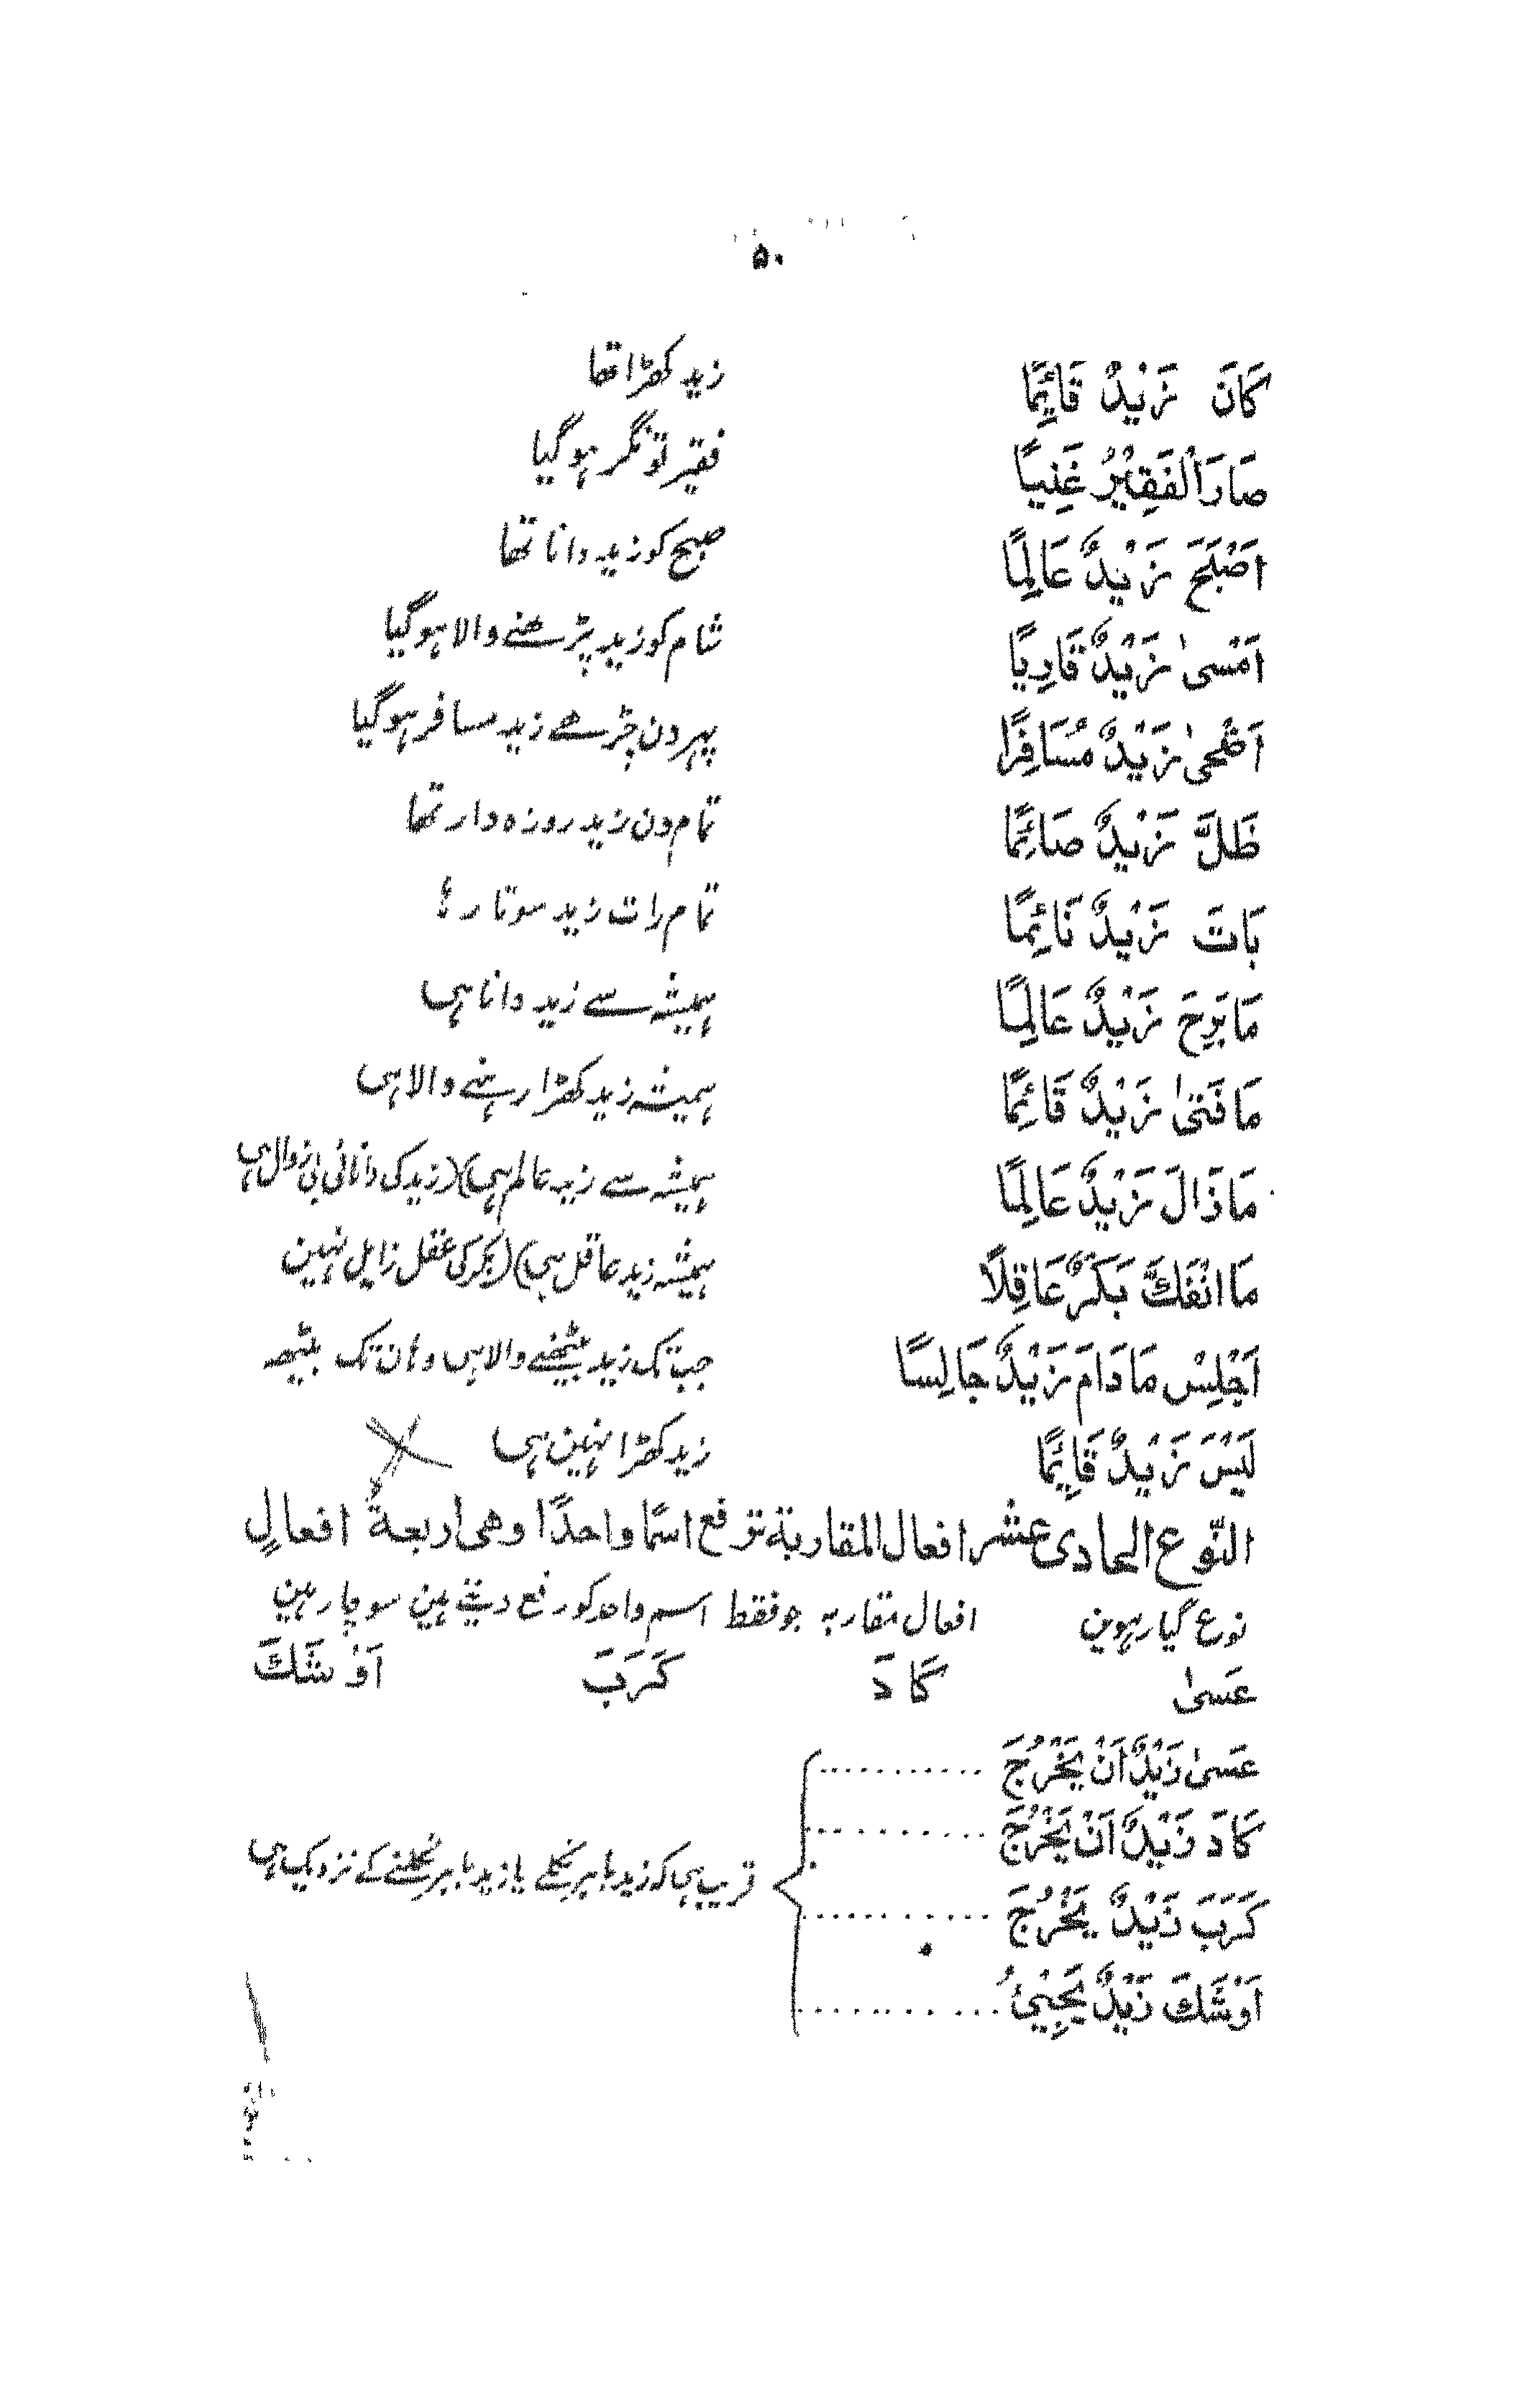 ۵۰
كَانَ زَيْدٌ قَائِمًا زید کھڑا تھا
صَارَ الْفَقِيْرُ غَنِيًا فقیر تونگر ہو گیا
اَصْبَحَ زَيْدٌ عَالِمًا صبح کو زید دانا تھا
اَمْسىٰ زَيْدٌ قَارِيًا شام کو زید پڑھنے والا ہو گیا
اَضْحىٰ زَيْدٌ مُسَافِرًا پہر دن چڑھے زید مسافر ہو گیا
ظَلَّ زَيْدٌ صَائِمًا تمام دن زید روزہ دار تھا
بَاتَ زَيْدٌ نَائِمًا تمام رات زید سوتا رہا
مَا بَرِحَ زَيْدٌ عَالِمًا ہمیشہ سے زید دانا ہی
مَا فَتىٰ زَيْدٌ قَائِمًا ہمیشہ زید کھڑا رہنے والا ہی
مَا ذَالَ زَيْدٌ عَالِمًا ہمیشہ سے زید عالم ہی)(زید کی دانائی بی زوال ہی
مَا انْفَكَّ بَكَرٌ عَاقِلًا ہمیشہ زید عاقل ہی)(بکر کی عقل زایل نہین
اَجْلِسْ مَا دَامَ زَيْدٌ جَالِسًا جب تک زید بیٹھنے والا ہی وہان تک بیٹھہ
لَيْسَ زَيْدٌ قَائِمًا زید کھڑا نہین ہی
النّوع الحادی عشر افعال المقاربة ترفع اسمًا واحدًا وهی اربعةُ افعالٍ
نوع گیارہوین افعال مقاربہ جو فقط اسم واحد کو رفع دیتے ہین سو چار ہین
عَسىٰ كَادَ كَرَبَ اَوْشَكَ
عَسىٰ زَيْدٌ اَنْ يَخْرُجَ
كَادَ زَيْدٌ اَنْ يَخْرُجَ
قریب ہی کہ زید باہر نکلے یا زید باہر نکلنے کے نزدیک ہی
كَرَبَ زَيْدٌ يَخْرُجَ
اَوْشَكَ زَيْدٌ يَجِيْئُ